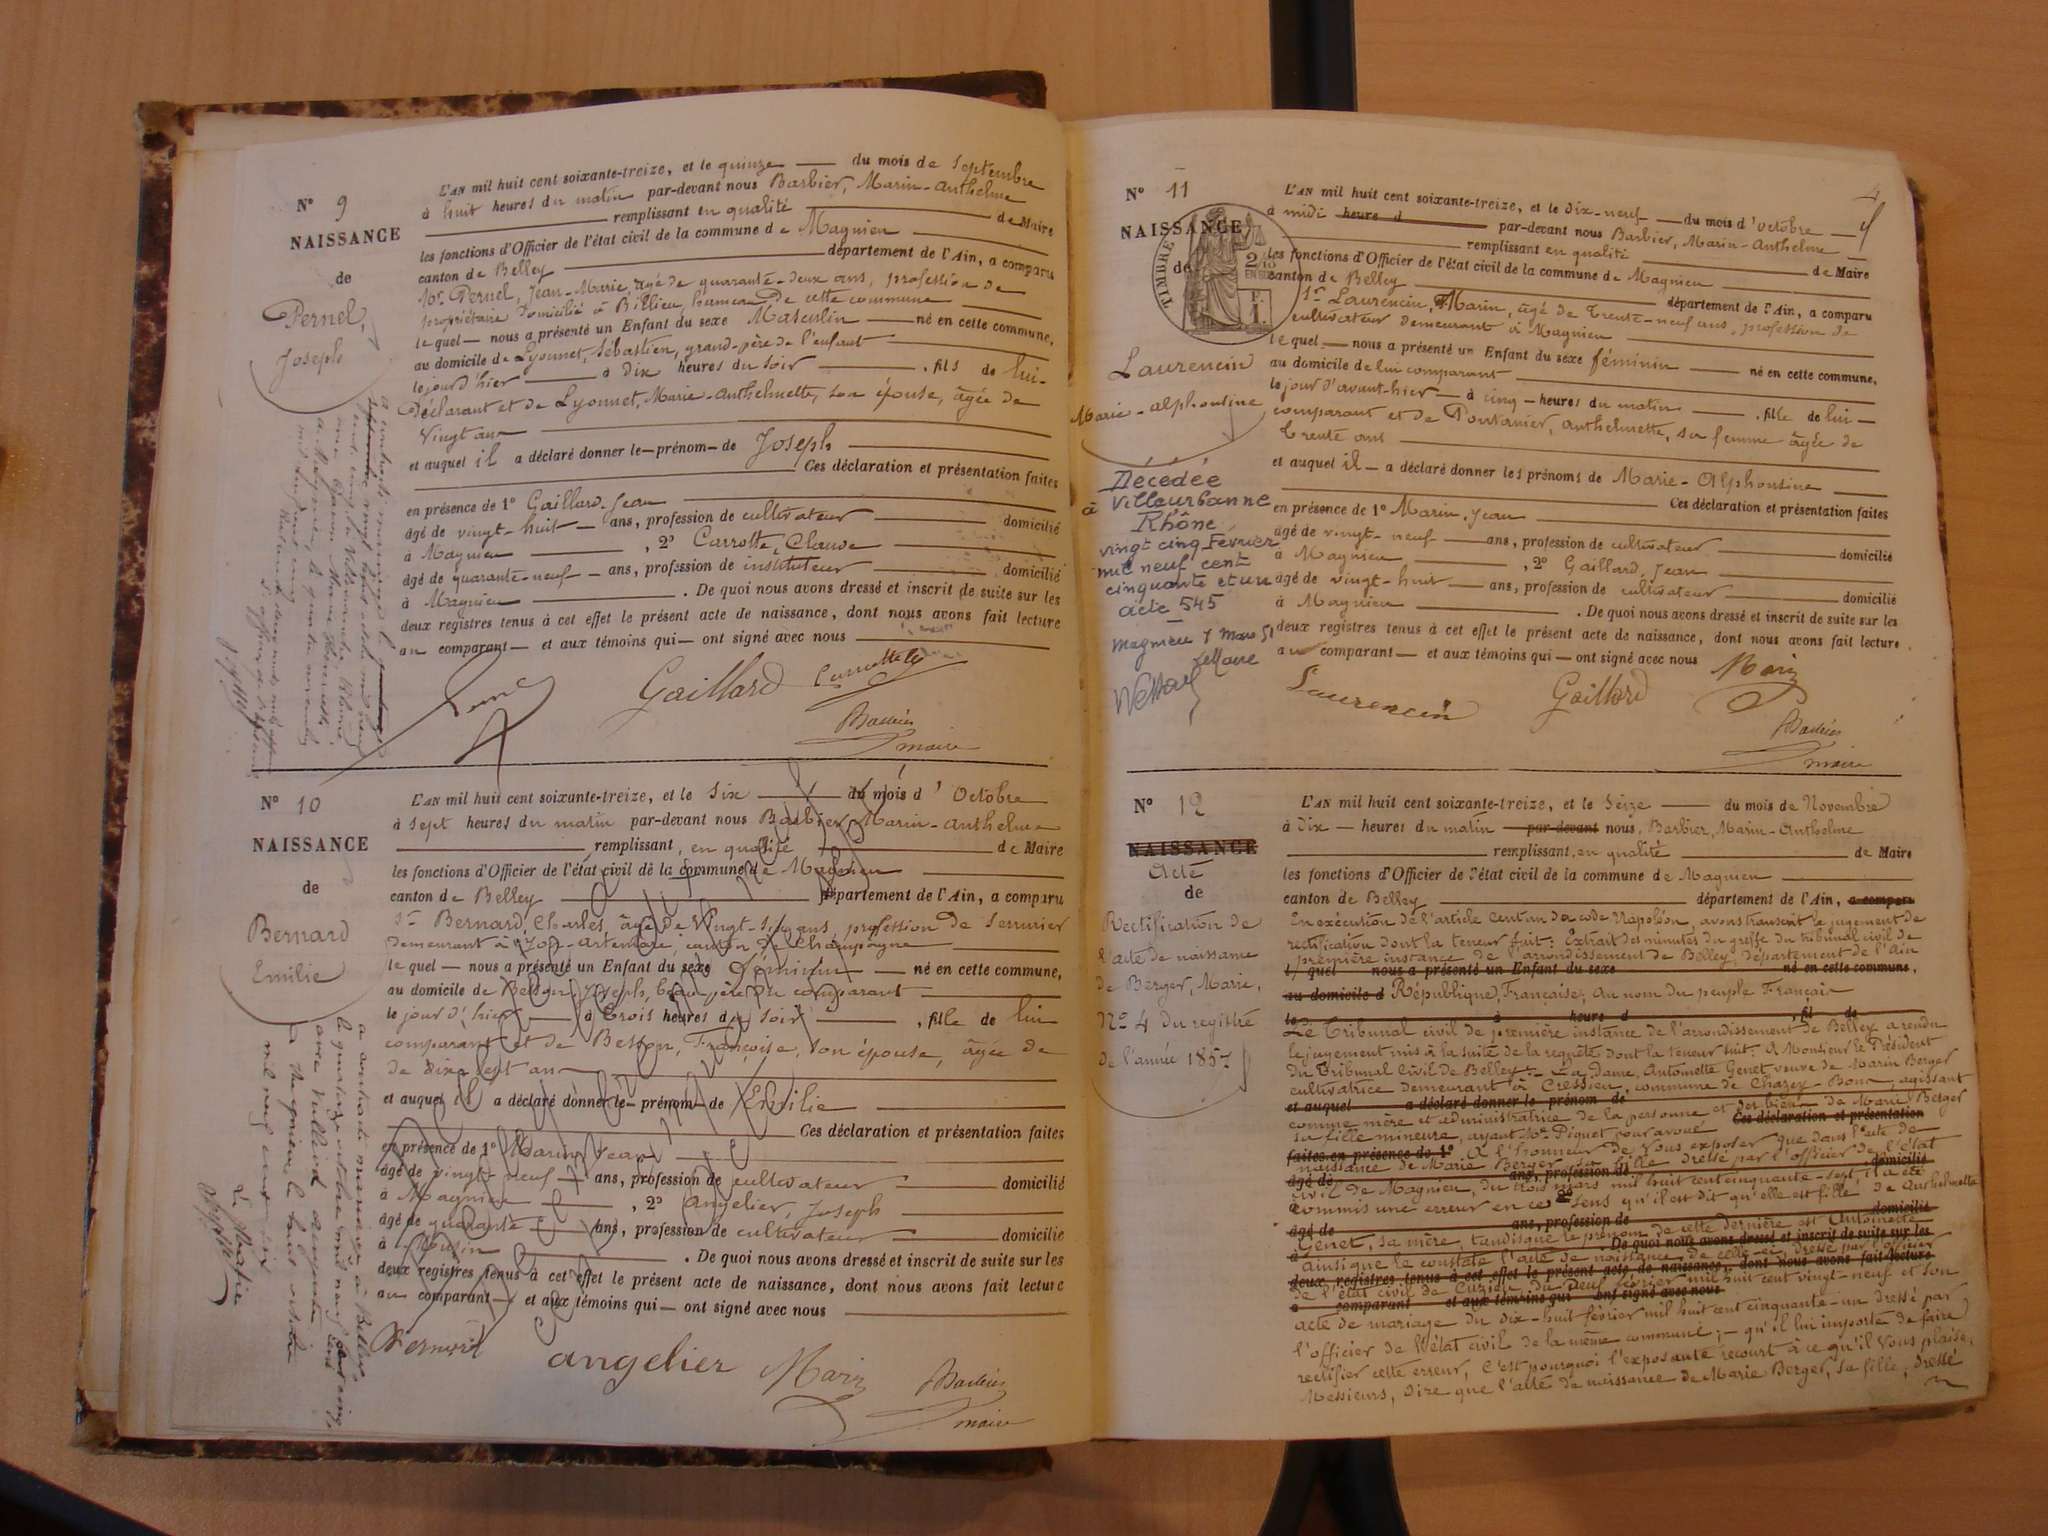 N° 9
NAISSANCE
de
Pernel,
Joseph
L'AN mil huit cent soixante-treize, et le quinze du mois de Septembre
à huit heures du matin par-devant nous Barbier, Marin-Anthelme
remplissant en qualité de Maire
les fonctions d'Officier de l'état civil de la commune de Magnieu
canton de Belley département de l'Ain, a comparu
Pernel, Jean-Marie, âgé de quarante-deux ans, profession de
propriétaire domicilié à Billieu, hameau de cette commune
le quel — nous a présenté un Enfant du sexe Masculin né en cette commune,
au domicile de Lyonnet, Sébastien, grand-père de l'enfant
le jour d'hier à dix heures du soir , fils de lui-
Déclarant et de Lyonnet, Marie-Anthelmette, son épouse, âgée de
vingt ans
et auquel il a déclaré donner le — prénom — de Joseph
Ces déclaration et présentation faites
en présence de 1° Gaillard, Jean
âgé de vingt-huit — ans, profession de cultivateur domicilié
à Magnieu , 2° Carrotte, Claude
âgé de quarante-neuf — ans, profession de instituteur domicilié
à Magnieu . De quoi nous avons dressé et inscrit de suite sur les
deux registres tenus à cet effet le présent acte de naissance, dont nous avons fait lecture
au comparant — et aux témoins qui — ont signé avec nous
Gaillard
Barbier
maire
N° 10
NAISSANCE
de
Bernard
Emilie
L'AN mil huit cent soixante-treize, et le six du mois d'Octobre
à sept heures du matin par-devant nous Barbier, Marin-Anthelme
remplissant, en qualité de Maire
les fonctions d'Officier de l'état civil de la commune de Magnieu
canton de Belley département de l'Ain, a comparu
Sr Bernard, Charles, âgé de vingt- ans, profession de serrurier
demeurant à Yon-Artemare, canton de Champagne
le quel — nous a présenté un Enfant du sexe féminin né en cette commune,
au domicile de Besson, Joseph, beau-père du comparant
le jour d'hier à trois heures du soir , fille de lui
comparant et de Besson, Françoise, son épouse, âgée de
dix-sept ans
et auquel il a déclaré donner le — prénom — de Emilie
Ces déclaration et présentation faites
en présence de 1° Marin, Jean
âgé de vingt-neuf ans, profession de cultivateur domicilié
à Magnieu , 2° Angelier, Joseph
âgé de quarante ans, profession de cultivateur domicilié
à . De quoi nous avons dressé et inscrit de suite sur les
deux registres tenus à cet effet le présent acte de naissance, dont nous avons fait lecture
au comparant — et aux témoins qui — ont signé avec nous
Bernard
angelier Marin Barbier
maire
a contracté mariage à Belley
le quatorze octobre mil neuf cent cinq,
avec
Magnieu le
mil neuf cent six
Le Maire
4
N° 11
NAISSANCE
de
TIMBRE
Laurencin
Marie-Alphonsine
Décédée
à Villeurbanne
Rhône
vingt cinq Février
mil neuf cent
cinquante et un
acte 545
Magnieu 7 Mars 51
Le Maire
L'AN mil huit cent soixante-treize, et le dix-neuf du mois d'octobre
à midi heure d par-devant nous Barbier, Marin-Anthelme
remplissant en qualité de Maire
les fonctions d'Officier de l'état civil de la commune de Magnieu
canton de Belley département de l'Ain, a comparu
Sr Laurencin, Marin, âgé de trente-neuf ans, profession de
cultivateur demeurant à Magnieu
le quel — nous a présenté un Enfant du sexe féminin né en cette commune,
au domicile de lui comparant
le jour d'avant-hier à cinq — heures du matin , fille de lui —
comparant et de Pontanier, Anthelmette, sa femme âgée de
trente ans
et auquel il — a déclaré donner les prénoms de Marie-Alphonsine
Ces déclaration et présentation faites
en présence de 1° Marin, Jean
âgé de vingt-neuf ans, profession de cultivateur domicilié
à Magnieu , 2° Gaillard, Jean
âgé de vingt-huit ans, profession de cultivateur domicilié
à Magnieu . De quoi nous avons dressé et inscrit de suite sur les
deux registres tenus à cet effet le présent acte de naissance, dont nous avons fait lecture
au comparant — et aux témoins qui — ont signé avec nous
Laurencin Gaillard Marin
Barbier
maire
N° 12
NAISSANCE
Acte
de
Rectification de
l'acte de naissance
de Berger, Marie,
N° 4 du registre
de l'année 1857
L'AN mil huit cent soixante-treize, et le seize du mois de Novembre
à dix — heures du matin par-devant nous, Barbier, Marin-Anthelme
remplissant, en qualité de Maire
les fonctions d'Officier de l'état civil de la commune de Magnieu
canton de Belley département de l'Ain, a comparu
En exécution de l'article cent un du code Napoléon, avons transcrit le jugement de
rectification dont la teneur suit : Extrait des minutes du greffe du tribunal civil de
première instance de l'arrondissement de Belley, département de l'Ain
le quel nous a présenté un Enfant du sexe né en cette commune,
au domicile d République Française, au nom du peuple Français
le à heure d , fil de
Le Tribunal civil de première instance de l'arrondissement de Belley a rendu
le jugement mis à la suite de la requête dont la teneur suit. A Monsieur le Président
du Tribunal civil de Belley : — La Dame, Antoinette Genet veuve de Marin Berger
cultivatrice demeurant à Cressieu, commune de Chazey-Bons, agissant
et auquel a déclaré donner le prénom de
comme mère et administratrice de la personne et des biens de Marie Berger
Ces déclaration et présentation
sa fille mineure, ayant Me Piquet pour avoué
faites en présence de 1° A l'honneur de vous exposer que dans l'acte de
naissance de Marie Berger sa fille dressé par l'officier de l'état
âgé de ans, profession de domicilié
civil de Magnieu, du trois mars mil huit cent cinquante-sept, il a été
commis une erreur en ce sens qu'il est dit qu'elle est fille de Anthelmette
âgé de ans, profession de domicilié
Genet, sa mère, tandis que le prénom de cette dernière est Antoinette
à De quoi nous avons dressé et inscrit de suite sur les
ainsi que le constate l'acte de naissance de celle-ci, dressé par l'officier
deux registres tenus à cet effet le présent acte de naissance, dont nous avons fait lecture
de l'état civil de , du neuf février mil huit cent vingt-neuf et son
a comparant et aux témoins qui ont signé avec nous
acte de mariage du dix-huit février mil huit cent cinquante-un dressé par
l'officier de l'état civil de la même commune ; — qu'il lui importe de faire
rectifier cette erreur, C'est pourquoi l'exposante recourt à ce qu'il vous plaise,
Messieurs, dire que l'acte de naissance de Marie Berger, sa fille, dressé